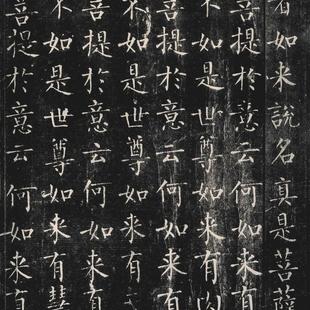 者如来說名真是菩薩
菩提於意云何如来有
不如是世尊如来有肉
菩提於意云何如来有
不如是世尊如来有
菩提於意云何如来有
不如是世尊如来有慧
菩提於意云何如来有